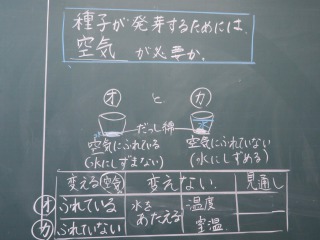 種子が発芽するためには、
空気 が必要か。
オ と カ
だっし綿
空気にふれている
(水にしずまない)
空気にふれていない
(水にしずめる)
変える空気 変えない 見通し
オ ふれている 水をあたえる 温度 室温
カ ふれていない